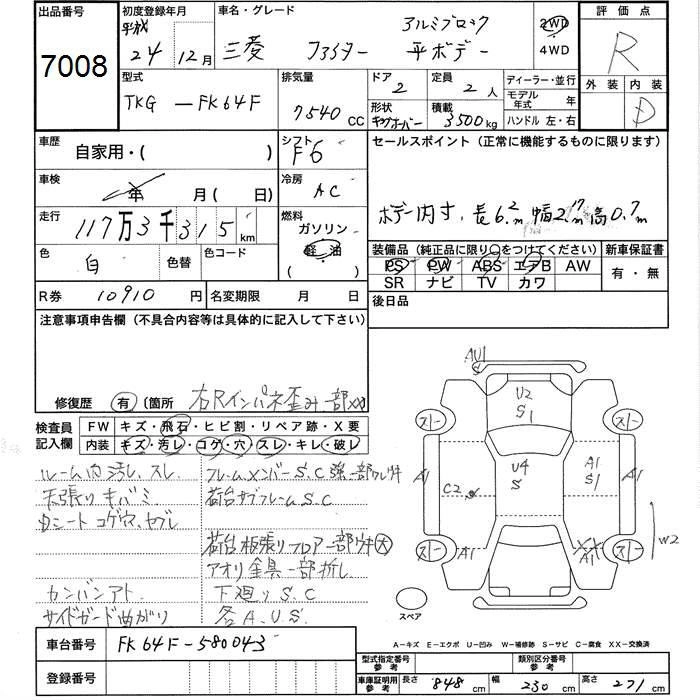 出品番号
7008
初度登録年月
平成
24 12月
車名・グレード
三菱 ファイター
アルミブロック
平ボデー
2WD
4WD
評価点
R
外装 内装
D
型式
TKG-FK64F
排気量
7540 CC
ドア
2
定員
2 人
形状
キャブオーバー
積載
3500kg
ディーラー・並行
モデル年式 年
ハンドル 左・右
車歴
自家用・( )
シフト
F6
車検
年 月(日)
冷房
AC
走行
117万3千315km
燃料
ガソリン
軽油
( )
色
白
色替
色コード
R券 10910 円
名変期限 月 日
セールスポイント(正常に機能するものに限ります)
ボデー内寸、長6.2m 幅2.17m 高0.7m
装備品(純正品に限り○をつけてください)
新車保証書
PS PW ABS エアB AW
SR ナビ TV カワ
有・無
後日品
注意事項申告欄(不具合内容等は具体的に記入して下さい)
修復歴 有 〔箇所 右Rインパネ歪み、一部XX〕
検査員記入欄
FW キズ・飛石・ヒビ割・リペア跡・X要
内装 キズ・汚レ・コゲ・穴・スレ・キレ・破レ
ルーム内汚レ、スレ
天張りキバミ
シートコゲ穴、ヤブレ
カンバンアト
サイドガード曲がり
フレームメンバーS.C
荷台サブフレームS.C
荷台板張りフロアー部
アオリ金具一部折し
下廻りS.C
各A.U.S
AU1
U2
S1
スリー
スリー
A1
C2
U4
S
A1
S1
A1
スリー
A1
XX
A1
スリー
W2
スペア
A-キズ E-エクボ U-凹み W-補修跡 S-サビ C-腐食 XX-交換済
車台番号
FK64F-580043
登録番号
型式指定番号
参考
類別区分番号
参考
車庫証明用
参考
長さ 848 cm
幅 230 cm
高さ 271 cm